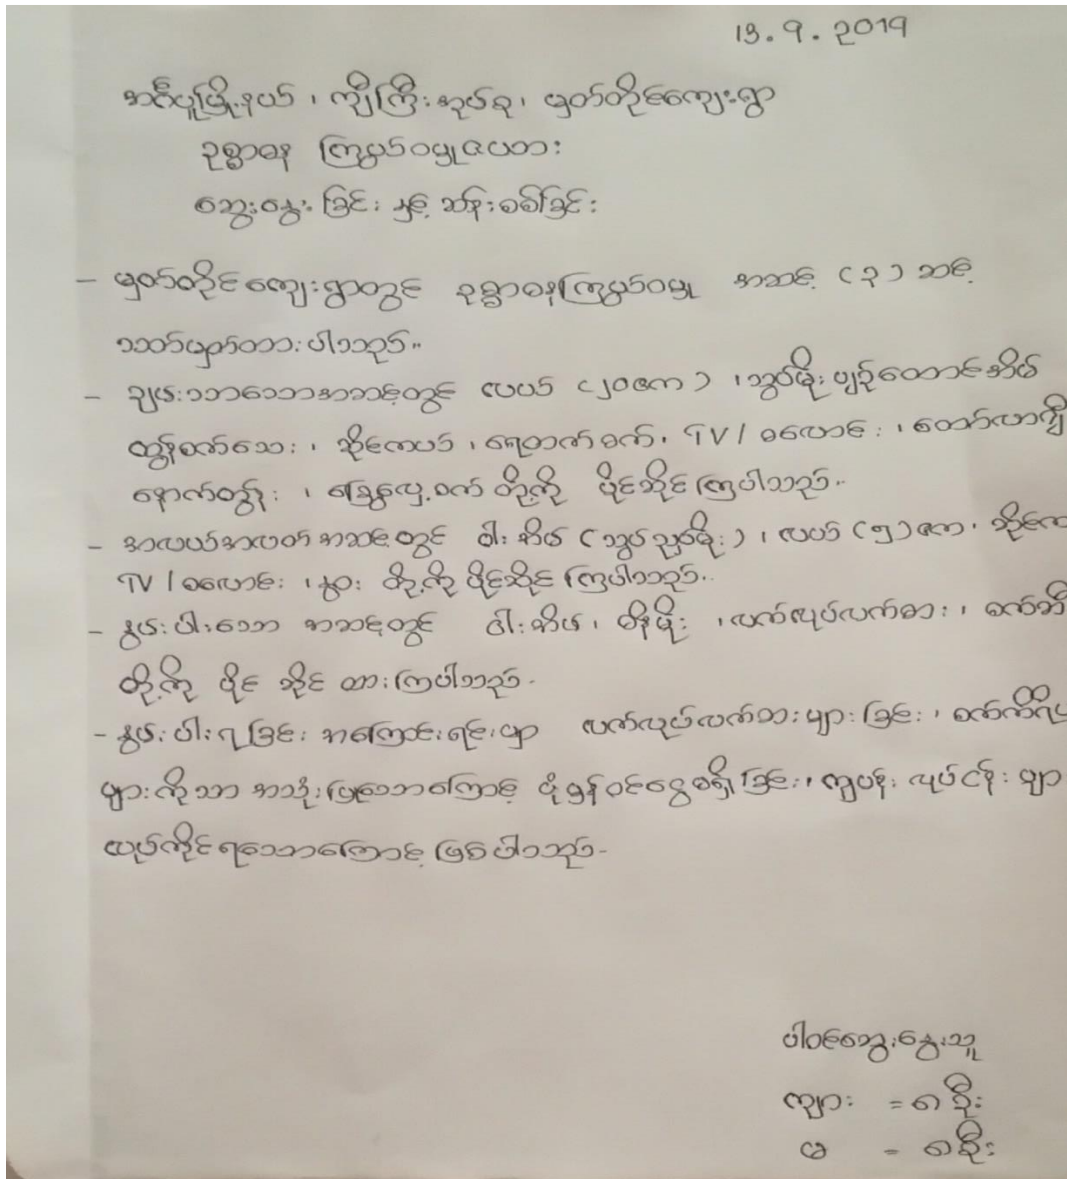 13.9.2019
အင်္ဂပူမြို့နယ်၊ ကျီကြီးအုပ်စု၊ မှတ်တိုင်ကျေးရွာ
ဥစ္စာဓန ကြွယ်ဝမှုဇယား
ဆွေးနွေးခြင်း နှင့် ဆန်းစစ်ခြင်း
- မှတ်တိုင်ကျေးရွာတွင် ဥစ္စာဓနကြွယ်ဝမှု အဆင့် (၃) ဆင့်
သတ်မှတ်ထားပါသည်။
- ချမ်းသာသောအဆင့်တွင် လယ် (၂၀ဧက)၊ သွပ်မိုးပျဉ်ထောင်အိမ်
ထွန်စက်သေး၊ ဆိုင်ကယ်၊ ရေတင်စက်၊ TV / စလောင်း၊ တော်လာဂျီ
နောက်တွဲ၊ ခြွေလှေ့စက် တို့ကို ပိုင်ဆိုင်ကြပါသည်။
- အလယ်အလတ်အဆင့်တွင် ဝါးအိမ် (သွပ်မိုး)၊ လယ် (၅) ဧက၊ ဆိုင်က
TV / စလောင်း၊ နွား တို့ကို ပိုင်ဆိုင်ကြပါသည်။
- နွမ်းပါးသော အဆင့်တွင် ဝါးအိမ်၊ ဓနိမိုး၊ လက်လုပ်လက်စား၊ စက်ဘီ
တို့ကို ပိုင်ဆိုင်ထားကြပါသည်။
- နွမ်းပါးရခြင်း အကြောင်းရင်းမှာ လက်လုပ်လက်စားများခြင်း၊
များကိုသာ အသုံးပြုသောကြောင့် ပုံမှန်ဝင်ငွေမရှိခြင်း၊ ကျပန်းလုပ်ငန်းမျာ
လုပ်ကိုင်ရသောကြောင့် ဖြစ်ပါသည်။
ပါဝင်ဆွေးနွေးသူ
ကျား = ၈ ဦး
မ = ၈ ဦး